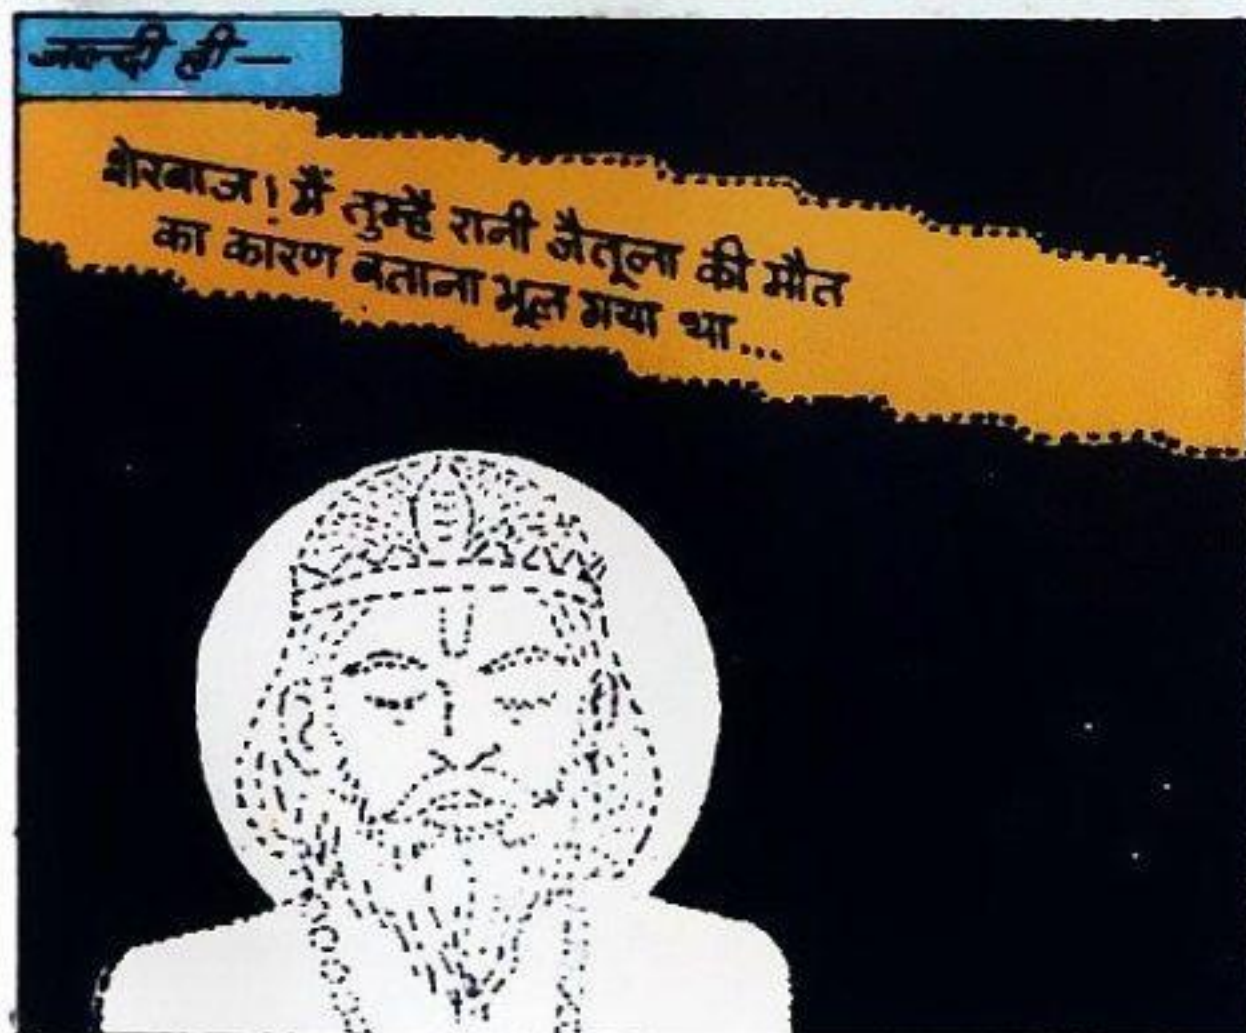 जल्दी ही—
शेरबाज! मैं तुम्हैं रानी जैतूना की मौत
का कारण बताना भूल गया था...